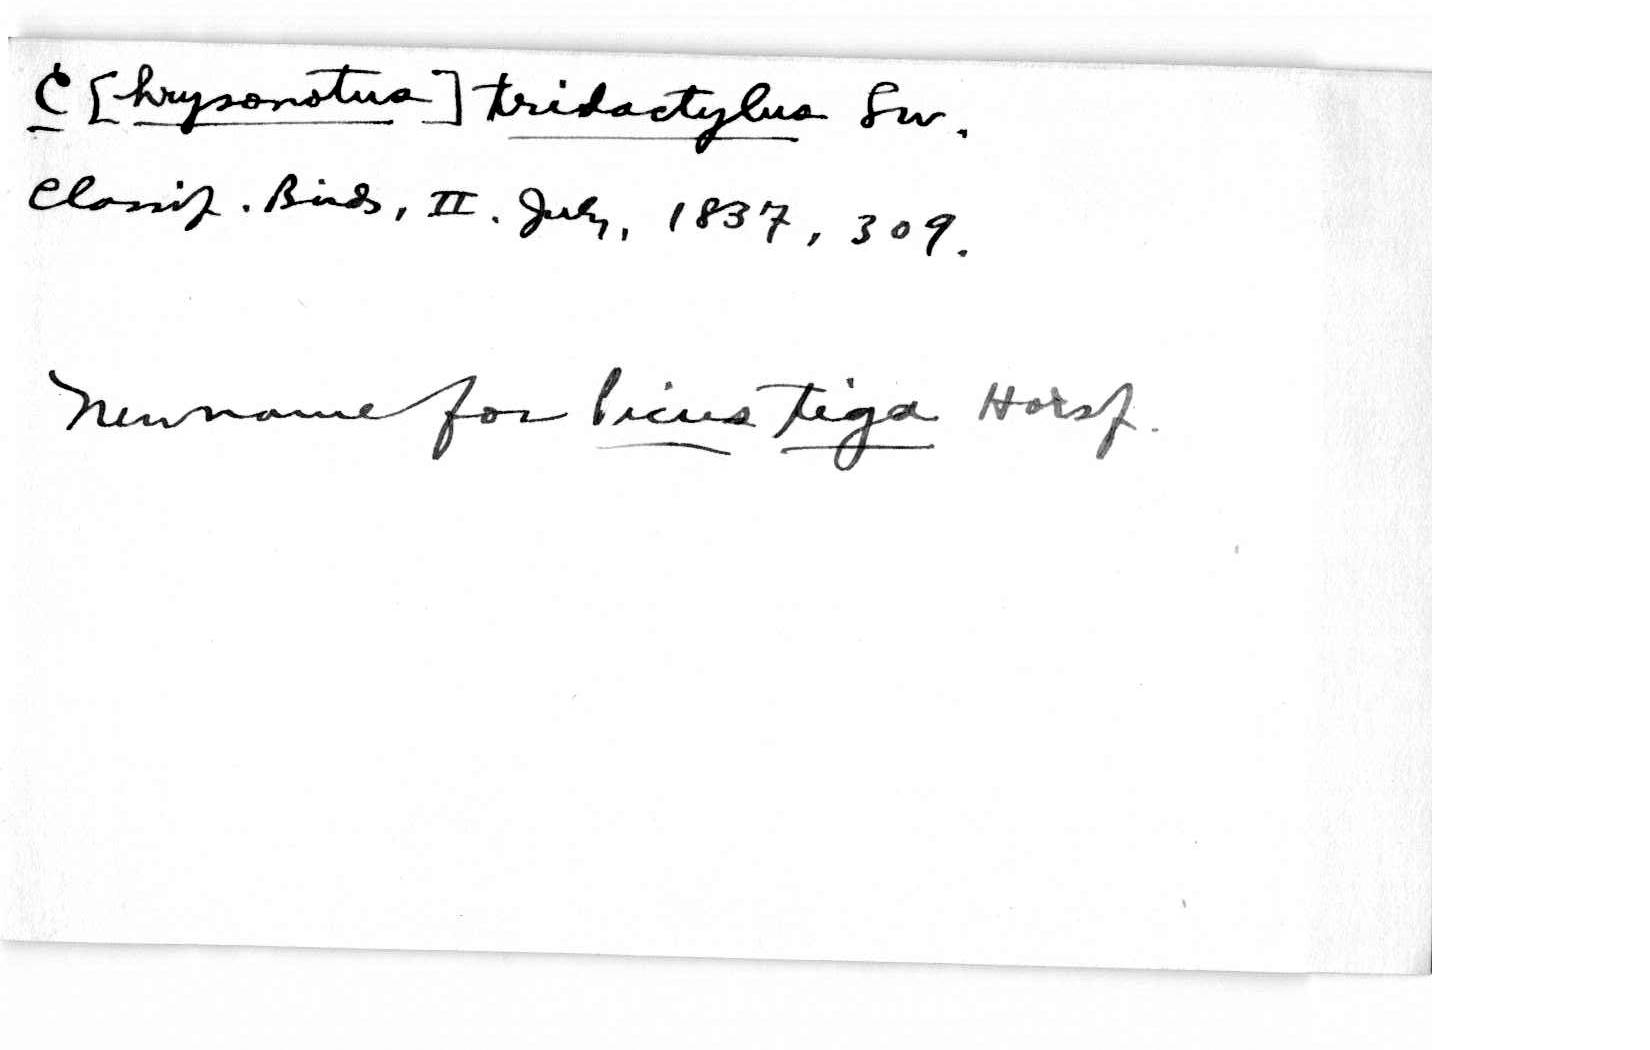 C[hrysonotus] tridactylus Sw.
Classif. Birds, II. July, 1837, 309.
New name for Picus tiga Horsf.